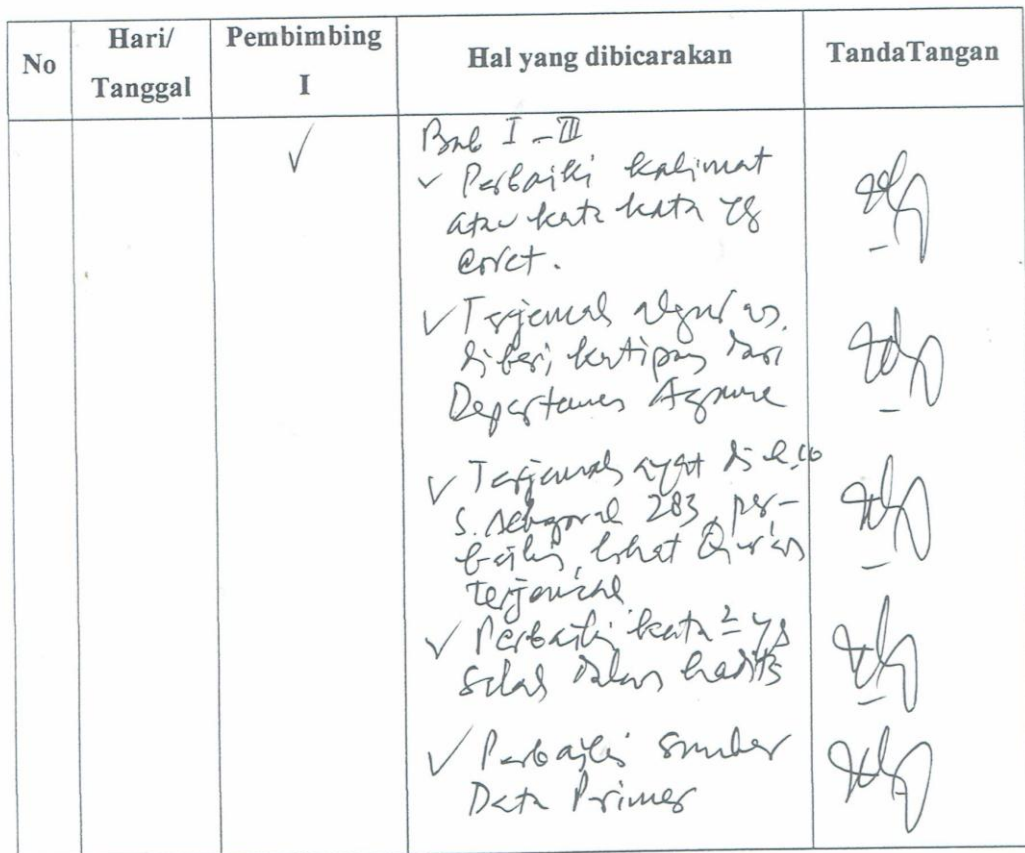 No
Hari/
Tanggal
Pembimbing
I
Hal yang dibicarakan
TandaTangan
Bab I - III
✓ Perbaiki kalimat
atau kata kata yg
coret.
✓ Terjemah alqur'an
diberi kutipan dari
Departemen Agama
✓ Terjemah ayat di
S. 283, per-
baiki, lihat Qur'an
terjemah
✓ Perbaiki kata² yg
salah dalam hadits
✓ Perbaiki sumber
Data Primer